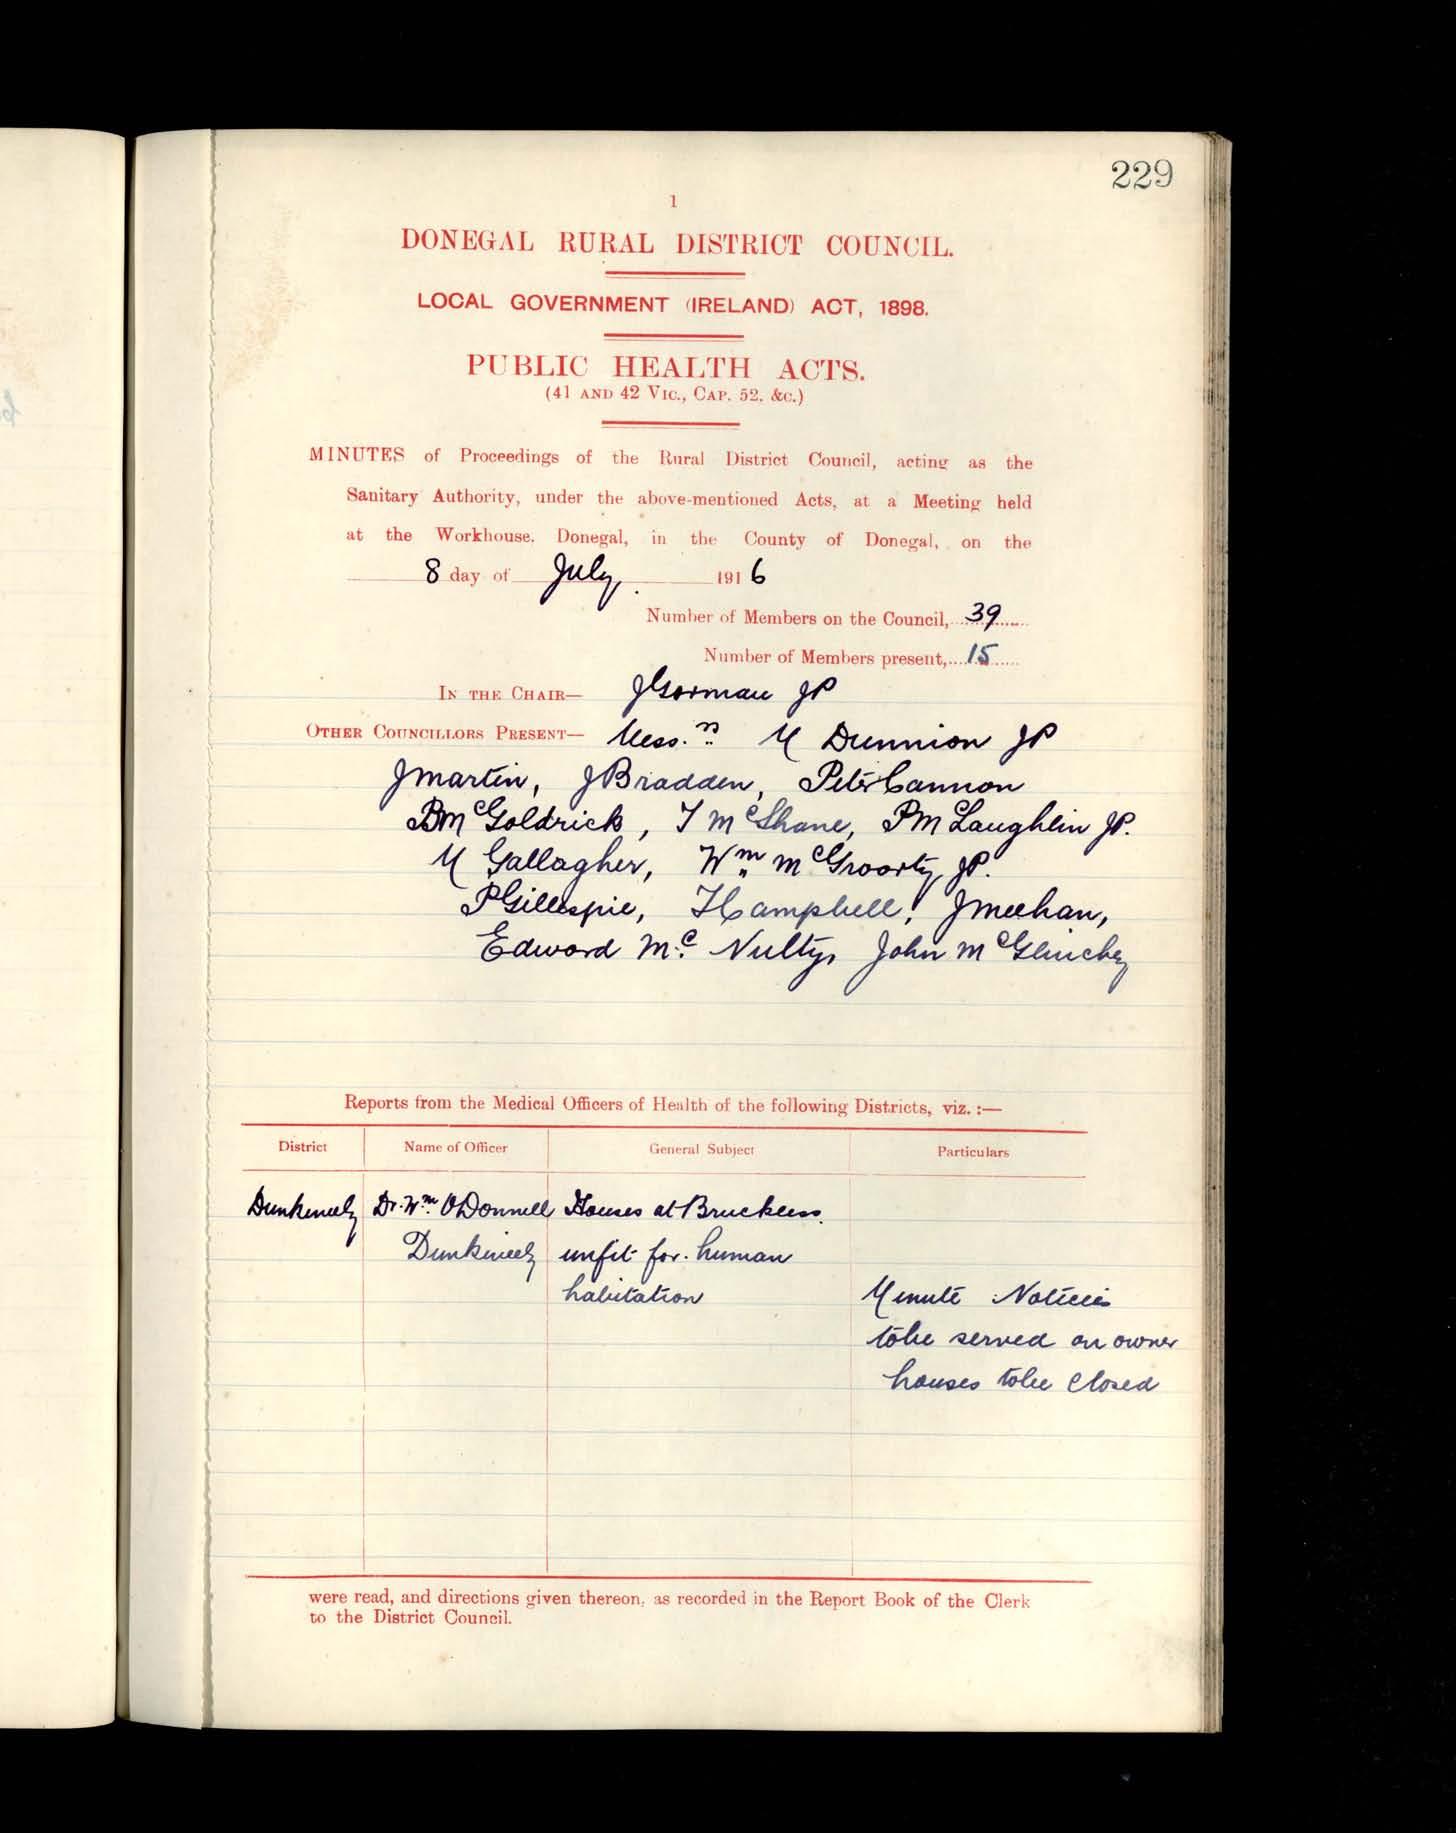 229
1
DONEGAL RURAL DISTRICT COUNCIL.
LOCAL GOVERNMENT (IRELAND) ACT, 1898.
PUBLIC HEALTH ACTS.
(41 AND 42 VIC., CAP. 52, &C.)
MINUTES of Proceedings of the Rural District Council, acting as the
Sanitary Authority, under the above-mentioned Acts, at a Meeting held
at the Workhouse, Donegal, in the County of Donegal, on the
8 day of July 1916
Number of Members on the Council, 39
Number of Members present, 15
IN THE CHAIR— J Gorman JP
OTHER COUNCILLORS PRESENT— Mess.rs M Dunnion JP
J Martin, J Bradden, Peter Cannon
B McGoldrick, T McShane, P McLaughlin JP.
M Gallagher, Wm McGroorty JP.
P Gillespie, T Campbell, J Meehan,
Edward Mc Nulty, John McGlinchey
Reports from the Medical Officers of Health of the following Districts, viz. :—
District Name of Officer General Subject Particulars
Dunkineely Dr. Wm O'Donnell Houses at Bruckless
Dunkineely unfit for human
habitation Minute Notices
to be served on owner
houses to be closed
were read, and directions given thereon, as recorded in the Report Book of the Clerk
to the District Council.